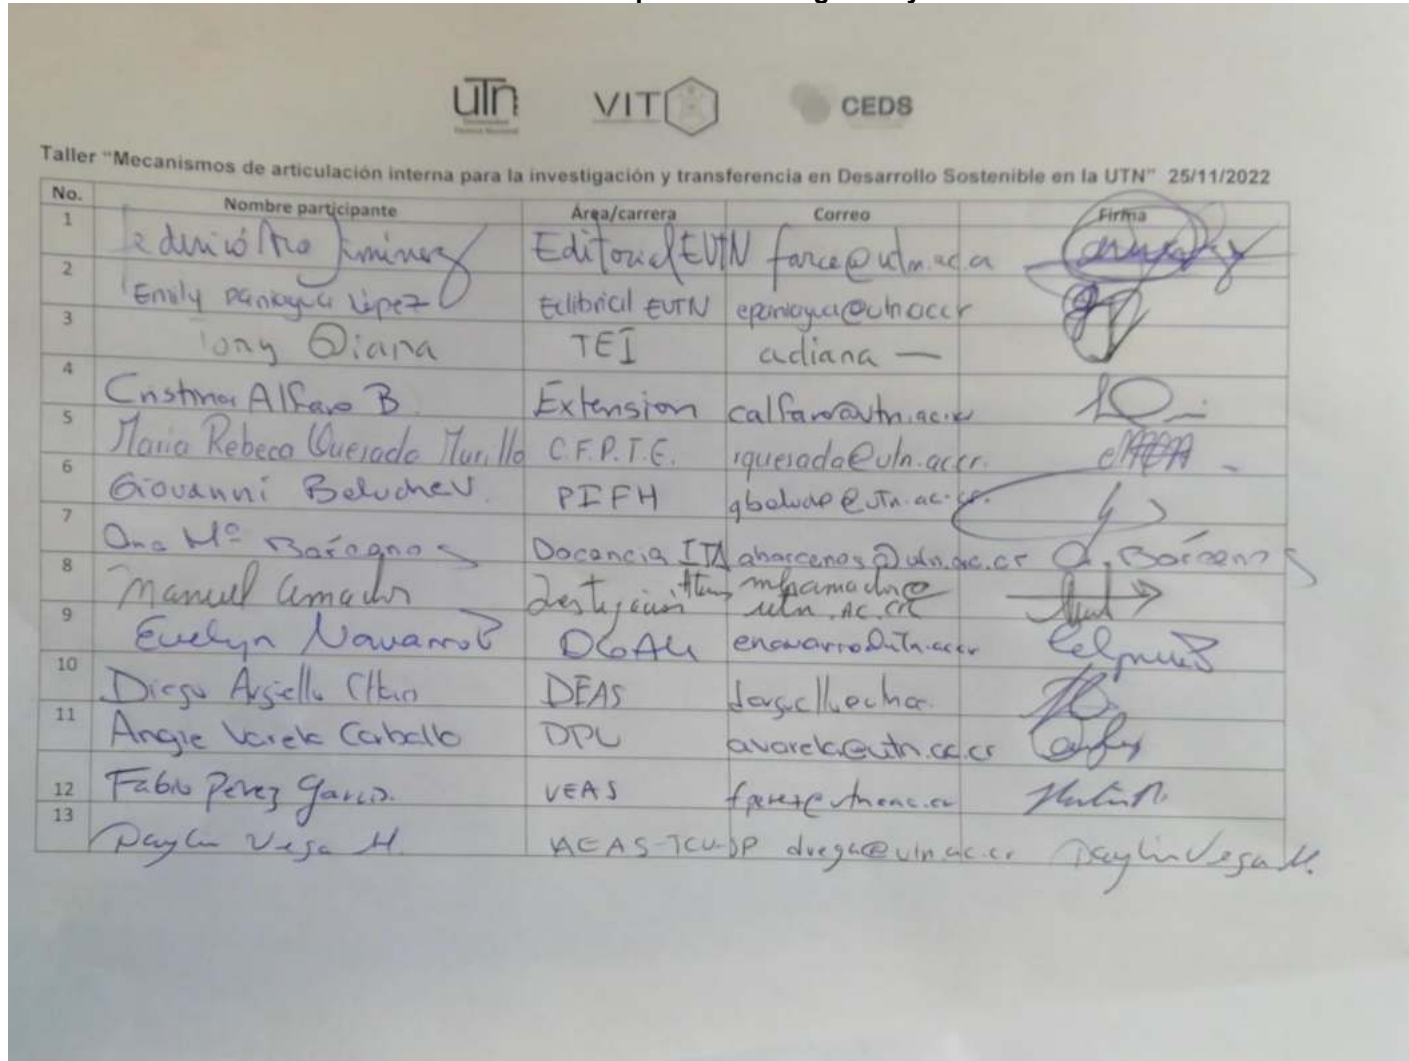 utn
VIT
CEDS
Taller "Mecanismos de articulación interna para la investigación y transferencia en Desarrollo Sostenible en la UTN" 25/11/2022
No. Nombre participante Área/carrera Correo Firma
1 Jiménez Editorial EUTN farce@utn.ac.
2 Emily Paniagua López Editorial EUTN epaniagua@utn.ac.cr
3 Tony Diana TEI adiana —
4 Cristina Alfaro B Extension calfaro@utn.ac.cr
5 Maria Rebeca Quesada Murillo C.F.P.T.E. rquesada@utn.ac.cr.
6 Giovanni Beluche V. PIFH gbeluche@utn.ac.cr.
7 Ana Mª Bárcenas Docencia ITA abarcenas@utn.ac.cr A. Bárcenas
8 Manuel Amador utn.ac.cr
9 Evelyn Navarro B enavarro@utn.ac.cr
10 Diego DEAS
11 Angie Varela Carballo DPU avarela@utn.ac.cr
12 Fabio Pérez García. VEAS fperez@utn.ac.cr
13 Daylin Vega M. dvega@utn.ac.cr Daylin Vega M.